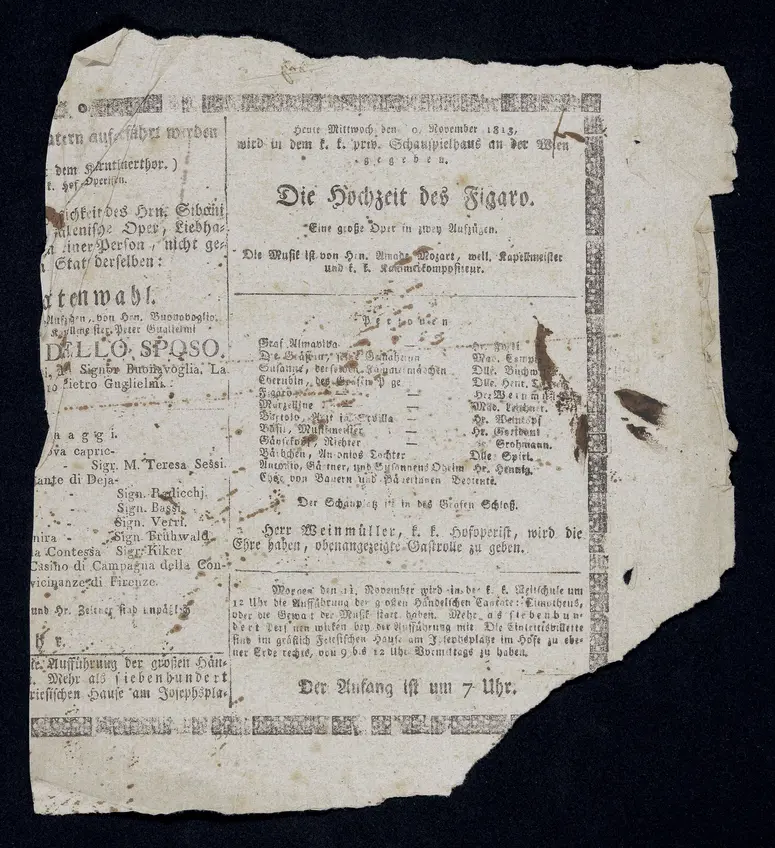 aufgeführt werden
dem Kärntnerthor.)
k. Hof-Operisten.
des Hrn. Siboni
Oper, Liebha-
einer Person, nicht ge-
Stat derselben:
tenwahl.
Aufzügen, von Hrn. Buonavoglia.
Peter Guglielmi
DELLO SPOSO.
Signor Buonavoglia, La
Pietro Guglielmi.
aggi.
va capric-
Sigr. M. Teresa Sessi.
ante di Deja-
Sign. Radicchj.
Sign. Bassi.
Sign. Verri.
nira - Sign. Frühwald.
la Contessa Sigr. Kiker
Casino di Campagna della Con-
vicinanze di Firenze.
und Hr. Zeltner sind unpäßlich
hr.
Aufführung der großen Hän-
Mehr als siebenhundert
riesischen Hause am Josephspla-
Heute Mittwoch den November 1813,
wird in dem k. k. priv. Schauspielhaus an der Wien
gegeben.
Die Hochzeit des Figaro.
Eine große Oper in zwey Aufzügen.
Die Musik ist von Hrn. Amade Mozart, weil. Kapellmeister
und k. k. Kammerkompositeur.
Personen
Graf Almaviva — Hr. Forti
Die Gräfin, seine Gemahlinn — Mad.
Susanne, derselben Kammermädchen — Dlle.
Cherubin, des Grafen Page — Dlle.
Figaro — Hr. Weinmüller
Marzelline — Mad.
Bartolo, Arzt in Sevilla — Hr. Weinkopf
Basil, Musikmeister — Hr.
Gänsekopf, Richter — Grohmann.
Bärbchen, Antonios Tochter — Dlle.
Antonio, Gärtner, und Susannens Oheim Hr. Hennig.
Chor von Bauern und Bäuerinnen Bediente.
Der Schauplatz ist in des Grafen Schloß.
Herr Weinmüller, k. k. Hofoperist, wird die
Ehre haben, obenangezeigte Gastrolle zu geben.
Morgen den 11. November wird in der k. k. Reitschule um
12 Uhr die Aufführung der großen Händelischen Cantate: Timotheus,
oder die Gewalt der Musik statt haben. Mehr als siebenhun-
dert Personen wirken bey der Aufführung mit. Die Eintrittsbillette
sind im gräflich Friesischen Hause am Josephsplatze im Hofe zu ebe-
ner Erde rechts, von 9 bis 12 Uhr Vormittags zu haben.
Der Anfang ist um 7 Uhr.